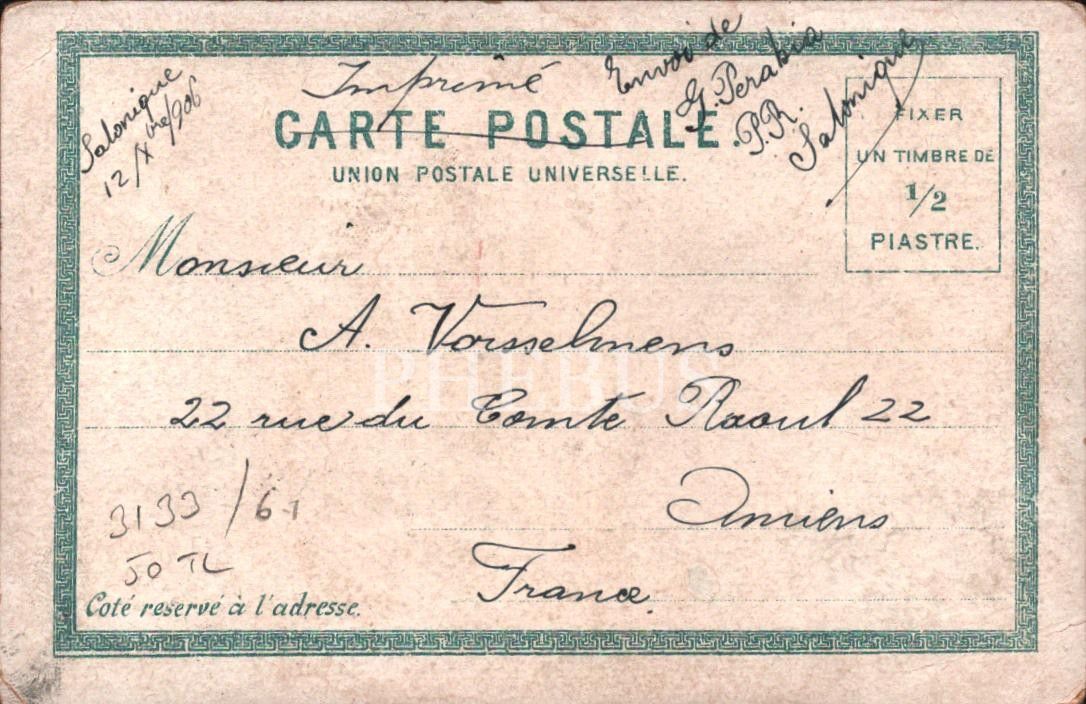 Salonique
12/X bre/906
Imprimé
Envoi de
G. Perahia
P.R.
Salonique
CARTE POSTALE.
UNION POSTALE UNIVERSELLE.
FIXER
UN TIMBRE DE
1/2
PIASTRE.
Monsieur
A. Vorsselmens
PHEBUS
22 rue du Comte Raoul 22
Amiens
France.
3133/61
50 TL
Coté reservé à l'adresse.